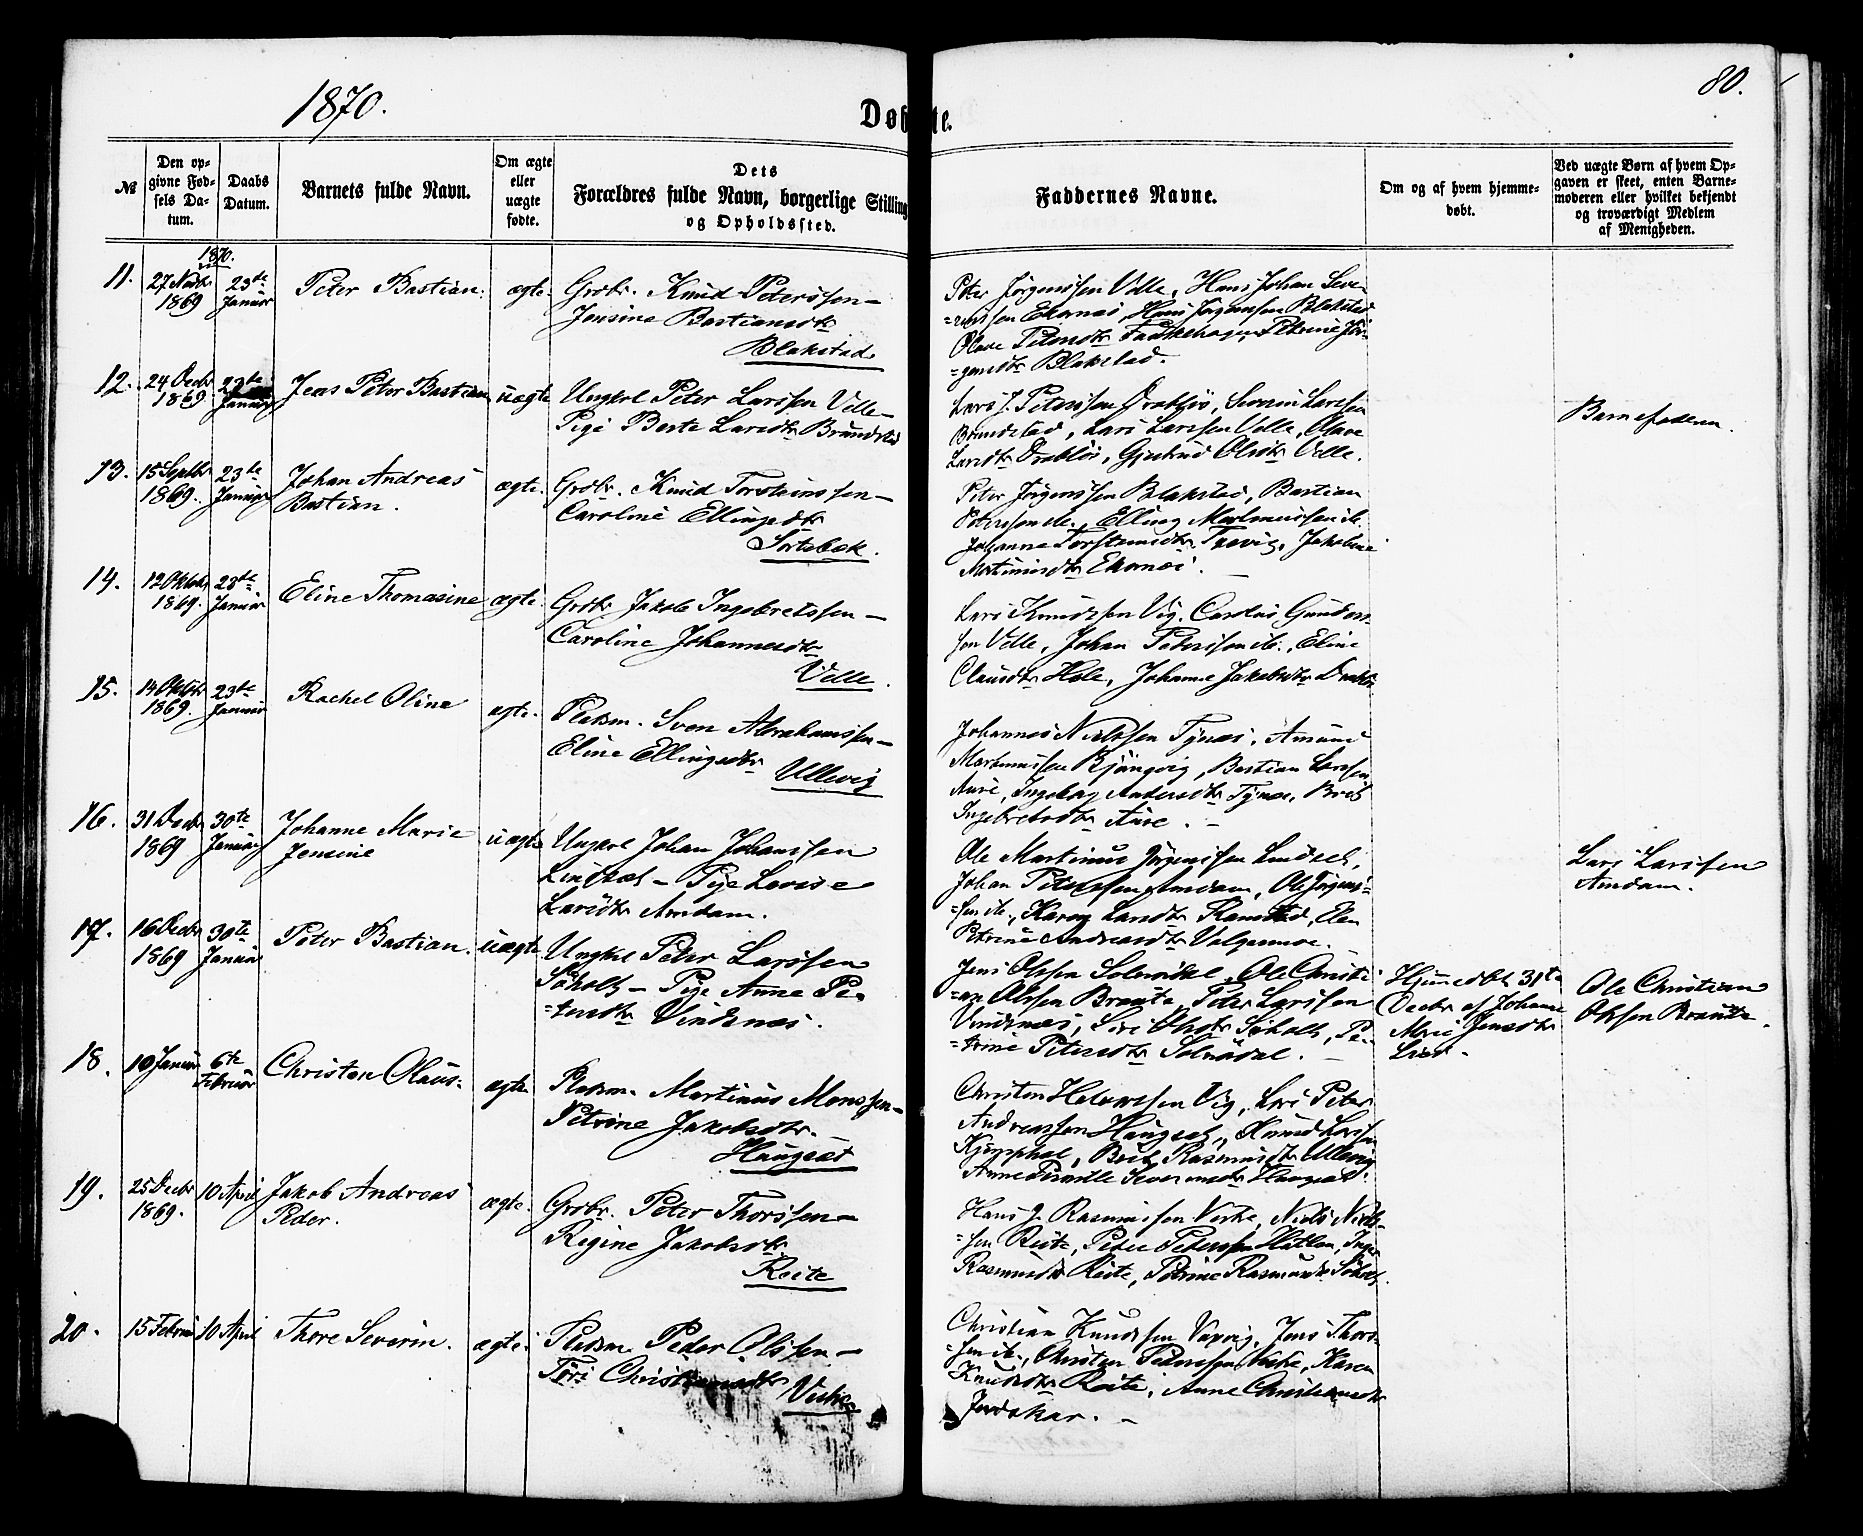 1870.
Døbte.
80.
№
Den opgivne Fødsels Datum.
Daabs Datum.
Barnets fulde Navn.
Om ægte eller uægte fødte.
Dets Forældres fulde Navn, borgerlige Stilling og Opholdssted.
Faddernes Navne.
Om og af hvem hjemmedøbt.
Ved uægte Børn af hvem Opgaven er skeet, enten Barnemoderen eller hvilket bekjendt og troværdigt Medlem af Menigheden.
1870.
11. 27 Novbr 1869 23de Januar Peter Bastian. ægte. Grdbr. Knud Peterssen –
Jensine Bastiansdtr
Blakstad
Peter Jørgenssen Velle, Hans Johan Seve-
=rinssen Ekornæs, Hans Jørgenssen Blakstad
Olave Petersdtr Petrine Jør-
=gensdtr Blakstad.
12. 24 Decbr 1869 23de Januar Jens Peter Bastian uægte Ungkrl Peter Larssen Velle –
Pige Berte Larsdtr Brundstad
Lars J. Peterssen Drabløs, Severin Larssen
Brundstad, Lars Larssen Velle, Olave
Larsdtr Drabløs, Gjertrud Olsdtr Velle.
Barnefaderen.
13. 15 Septbr 1869. 23de Januar Johan Andreas
Bastian. ægte. Grdbr. Knud Torsteinssen –
Caroline Ellingsdtr
Sortebæk.
Peter Jørgenssen Blakstad, Bastian
Peterssen ib., Elling Martinussen ib.
Johanne Torsteinsdtr Tuevig, Jakobine
Martinusdtr Ekornæs. –
14. 12 Oktobr 1869. 23de Januar Eline Thomasine ægte. Grdbr Jakob Ingebretssen –
Caroline Johannesdtr
Velle.
Lars Knudssen Vig, Carolus Gunders-
sen Velle, Johan Peterssen ib., Eline
Clausdtr Hole, Johanne Jakobsdtr Drabløs
15. 14 Oktbr 1869. 23de Januar Rachel Oline ægte. Pladsm. Sven Abrahamssen –
Eline Ellingsdtr
Ullevig
Johannes Nielssen Tynæs, Amund
Martinussen Bjørgvig, Bastian Larssen
Aure, Ingeborg Andersdtr Tynæs, Brit
Ingebretsdtr Aure. –
16. 31 Decbr 1869 30te Januar Johanne Marie
Jensine uægte Ungkrl Johan Johanssen
Lindset – Pige Lovise
Larsdtr Amdam.
Ole Martinus Jørgenssen Lindset,
Johan Peterssen Amdam, Ole Jørgens-
=sen ib., Karen Larsdtr Ramstad, Elen
Petrine Andreasdtr Valgermoe.
Lars Larssen
Amdam.
17. 16 Decbr 1869 30te Januar Peter Bastian. uægte Ungkrl Peter Larssen
Søholt – Pige Anne Pe-
=tersdtr Vindsnæs.
Jens Olssen Solnørdal, Ole Christi-
=an Olssen Braute, Peter Larssen
Vindsnæs, Siri Olsdtr Søholt, Pe-
=trine Petersdtr Solnørdal. –
Hjemmedøbt 31te
Decbr af Johanne
Marie Jensdtr
Lied.
Ole Christian
Olssen Braute.
18. 10 Januar 6te Februar Christen Olaus. ægte Pladsm. Martinus Monssen –
Petrine Jakobsdtr.
Haugset
Christen Helgessen Vig, Lars Peter
Andreassen Haugset, Knud Larssen
Kjemphol, Brit Rasmusdtr Ullevig
Anne Pernille Severinsdtr Haugset.
19. 25 Decbr 1869. 10 April Jakob Andreas
Peder. ægte. Grdbr. Peter Thorssen –
Regine Jakobsdtr
Reite
Hans J. Rasmussen Virke, Niels Niels-
=sen Reite, Peter Peterssen Hatlen, Inger
Rasmusdtr Reite, Petrine Rasmusdtr Søholt.
20. 15 Februar 10 April Thore Severin. ægte. Pladsm Peder Olssen –
Turi Christiansdtr
Virke
Christian Knudssen Vaxvig, Jens Thors-
=sen ib., Christen Pederssen Virke, Karen
Knudsdtr Reite, Anne Christiansdtr
Jordakar. –